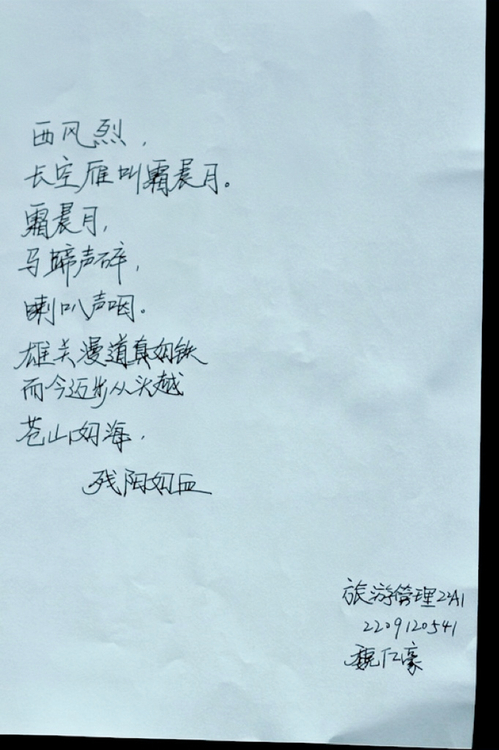 西风烈，
长空雁叫霜晨月。
霜晨月，
马蹄声碎，
喇叭声咽。
雄关漫道真如铁
而今迈步从头越
苍山如海，
残阳如血
旅游管理22A1
2209120541
魏仁豪